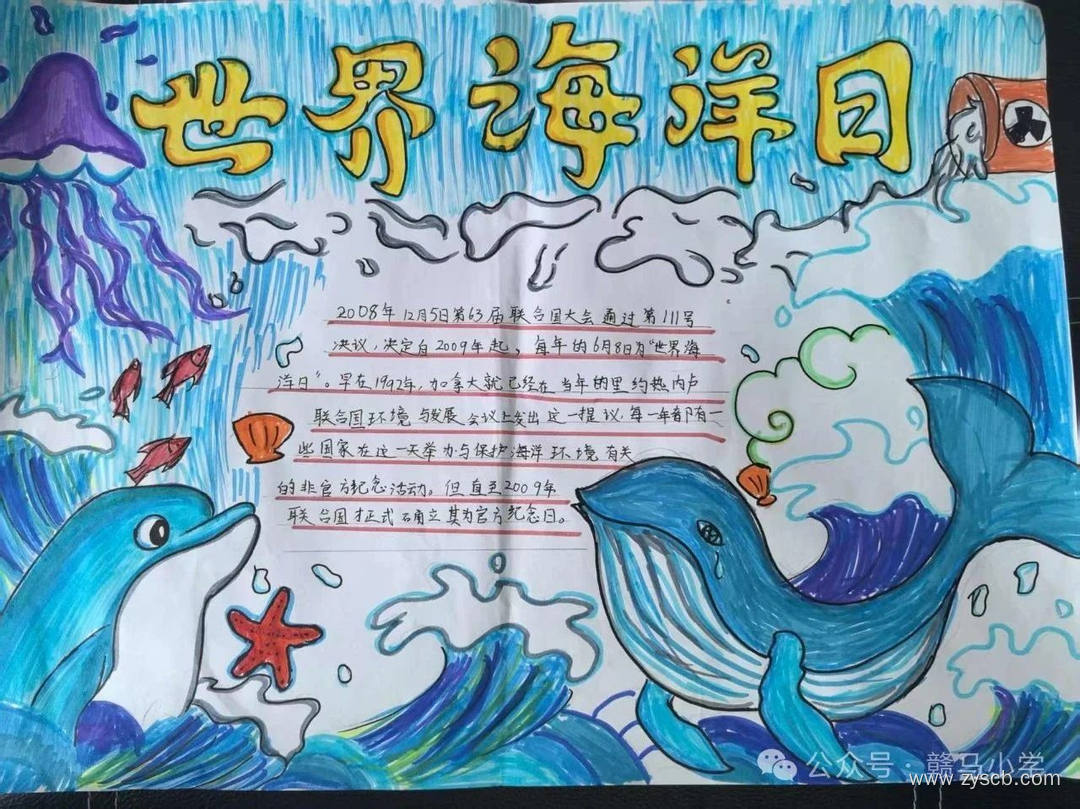 世界海洋日
2008年12月5日第63届联合国大会通过第111号
决议，决定自2009年起，每年的6月8日为“世界海
洋日”。早在1992年，加拿大就已经在当年的里约热内卢
联合国环境与发展会议上发出这一提议，每一年都有一
些国家在这一天举办与保护海洋环境有关
的非官方纪念活动。但直至2009年
联合国才正式确立其为官方纪念日。
公众号·赣马小学
www.zyscb.com